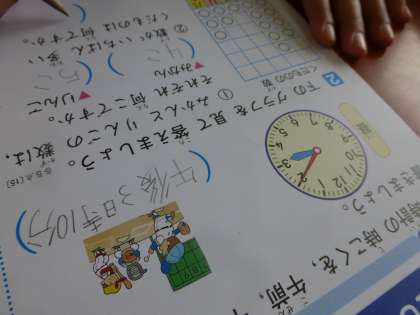 時計の時こくを、午前、
きましょう。
12 1 2 3 4 5 6 7 8 9 10 11
(午後3時10分)
2 下のグラフを見て答えましょう。
各5点[15]
くだものの数
① みかんとりんごの数は、
それぞれ何こですか。
▲みかん
(4こ)
▲りんご
(5こ)
② 数がいちばん多い
くだものは何ですか。